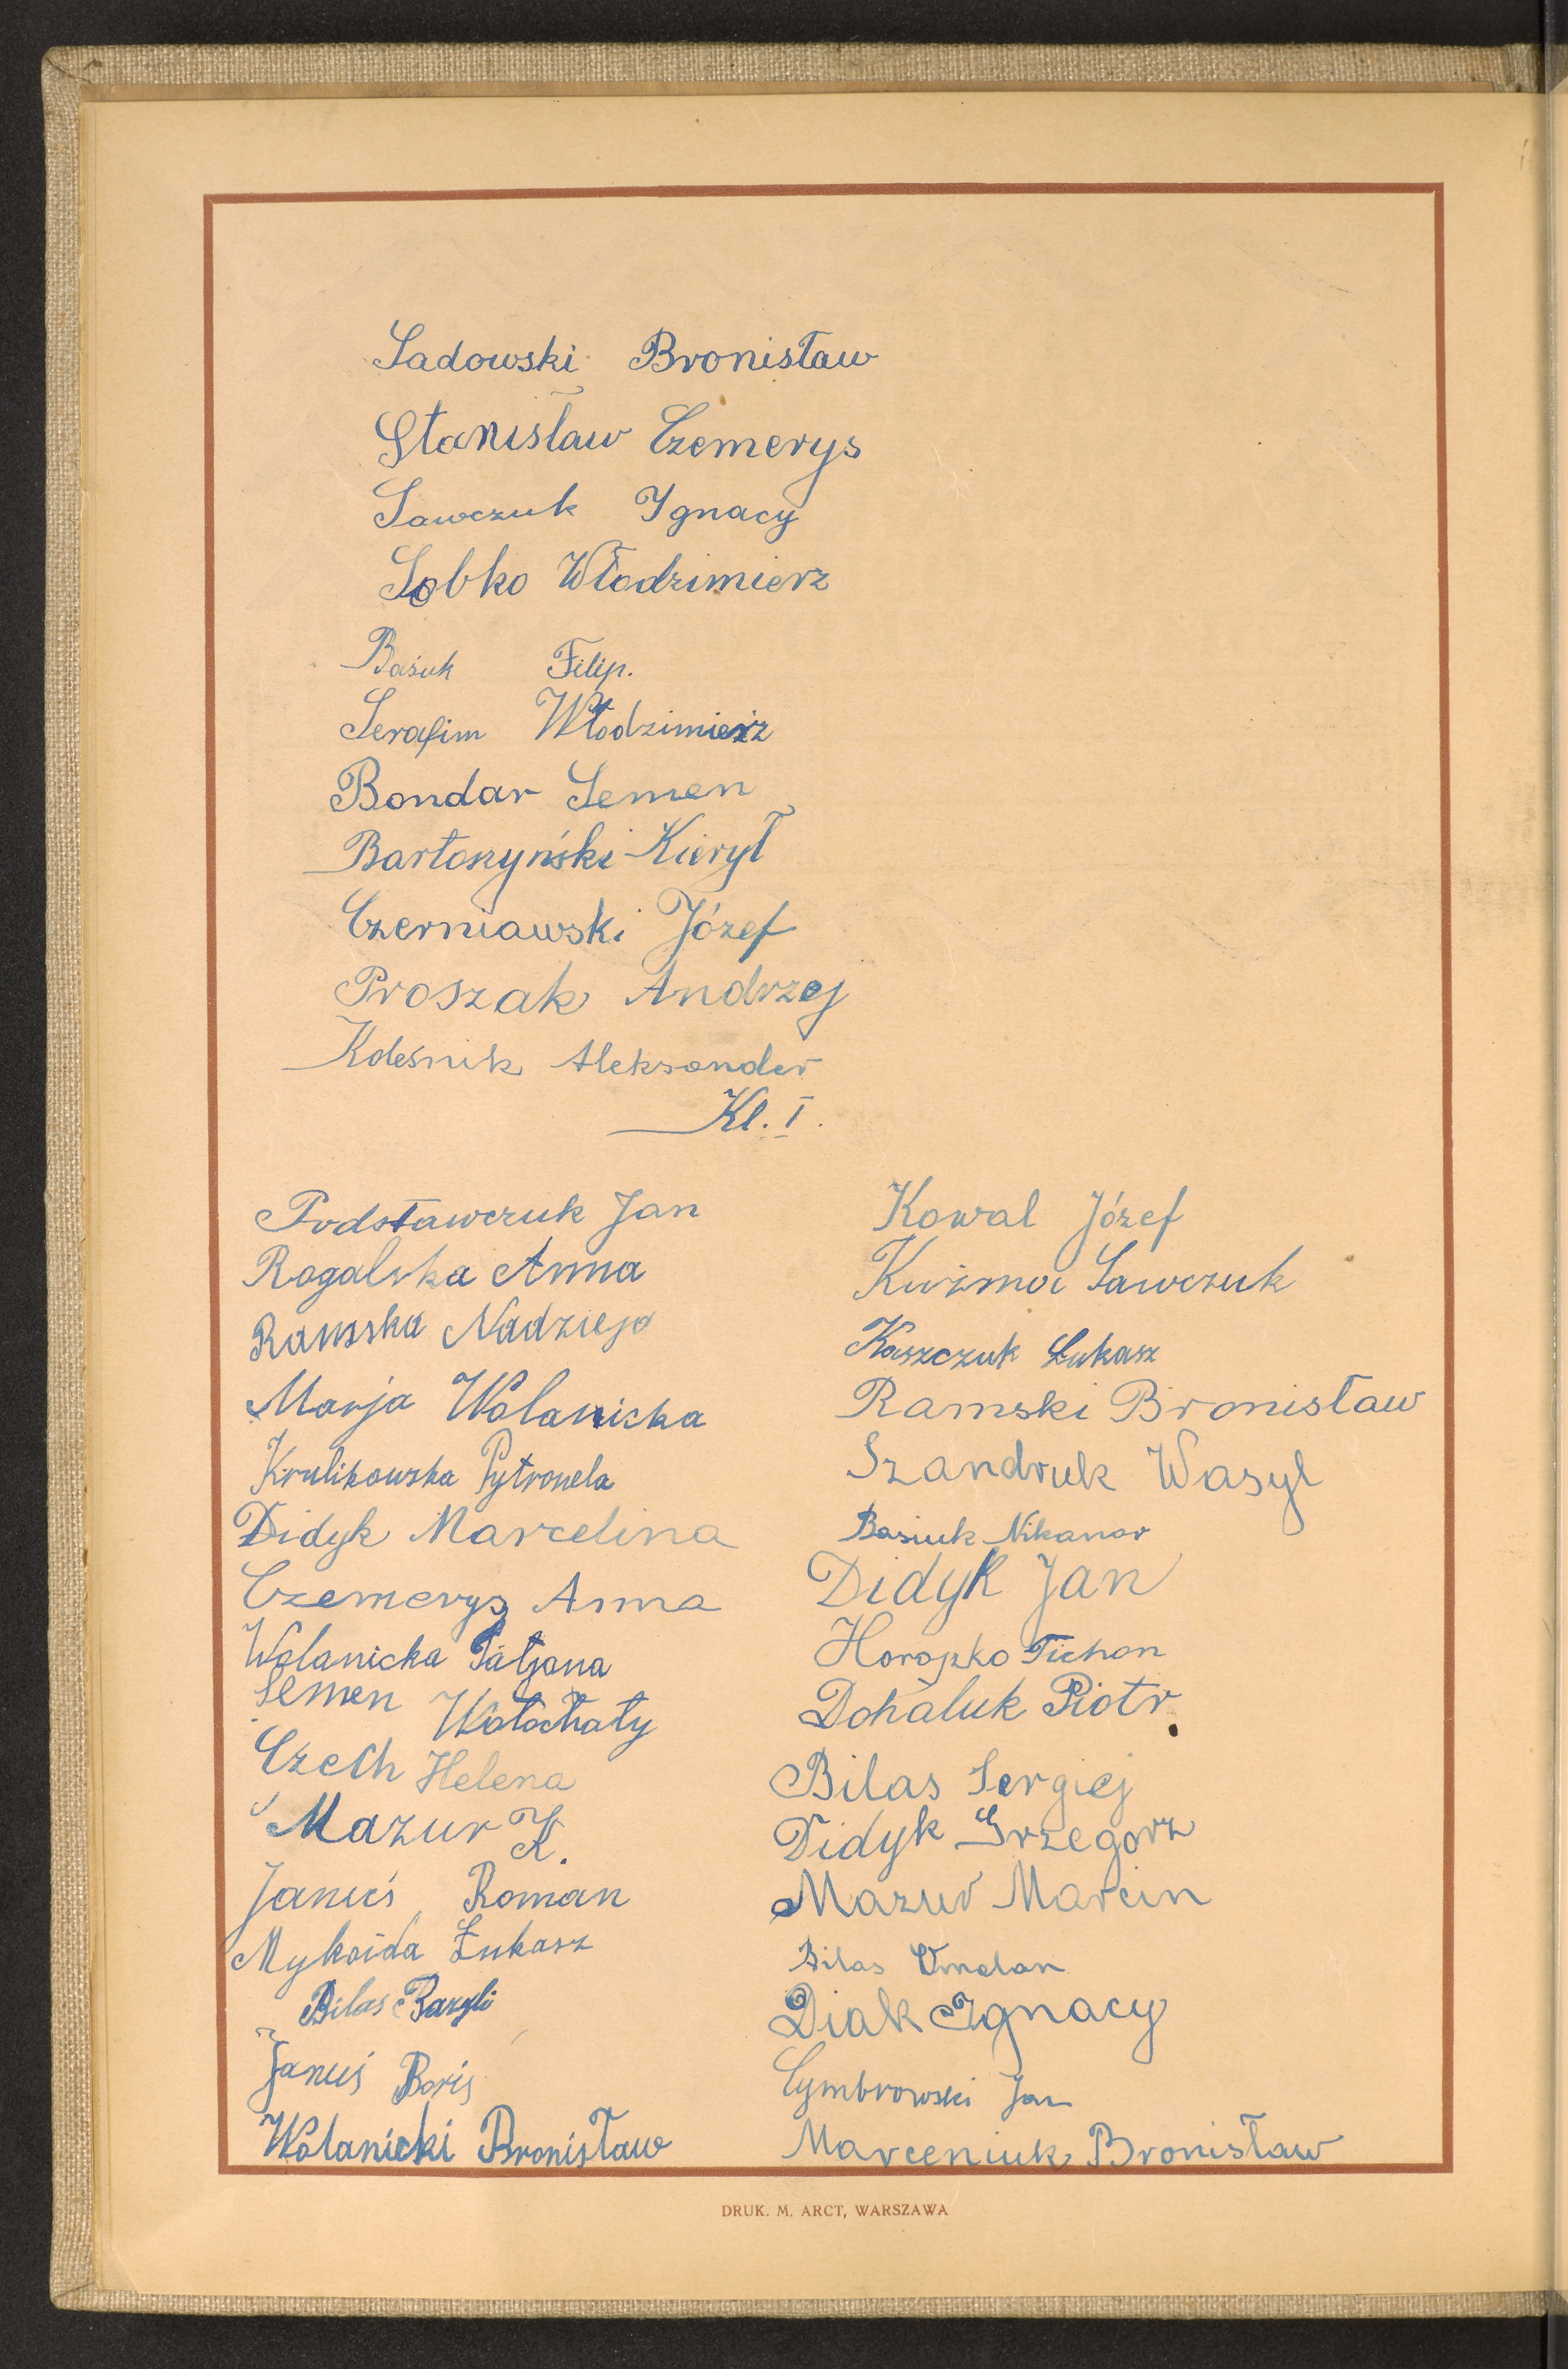 Sadowski Bronisław
Stanisław Czemerys
Sawczuk Ignacy
Sobko Włodzimierz
Basiuk Filip.
Serafim Włodzimierz
Bondar Semen
Bartoszyński Kierył
Czerniawski Józef
Proszak Andrzej
Koleśnik Aleksander
Kl. I.
Podstawczuk Jan
Rogalska Anna
Ramska Nadzieja
Marja Wolanicka
Krulikowska Pytronela
Didyk Marcelina
Czemerys Anna
Wolanicka Tatjana
Semen Wołochaty
Czech Helena
Mazur K.
Januś Roman
Mykoida Łukasz
Bilas Bazyli
Januś Boris
Wolanicki Bronisław
Kowal Józef
Kuźma Sawczuk
Kaszczuk Łukasz
Ramski Bronisław
Szandruk Wasyl
Basiuk Nikanor
Didyk Jan
Horopko Tichon
Dohaluk Piotr
Bilas Sergiej
Didyk Grzegorz
Mazur Marcin
Bilas
Diak Ignacy
Cymbrowski Jan
Marceniuk Bronisław
DRUK. M. ARCT, WARSZAWA